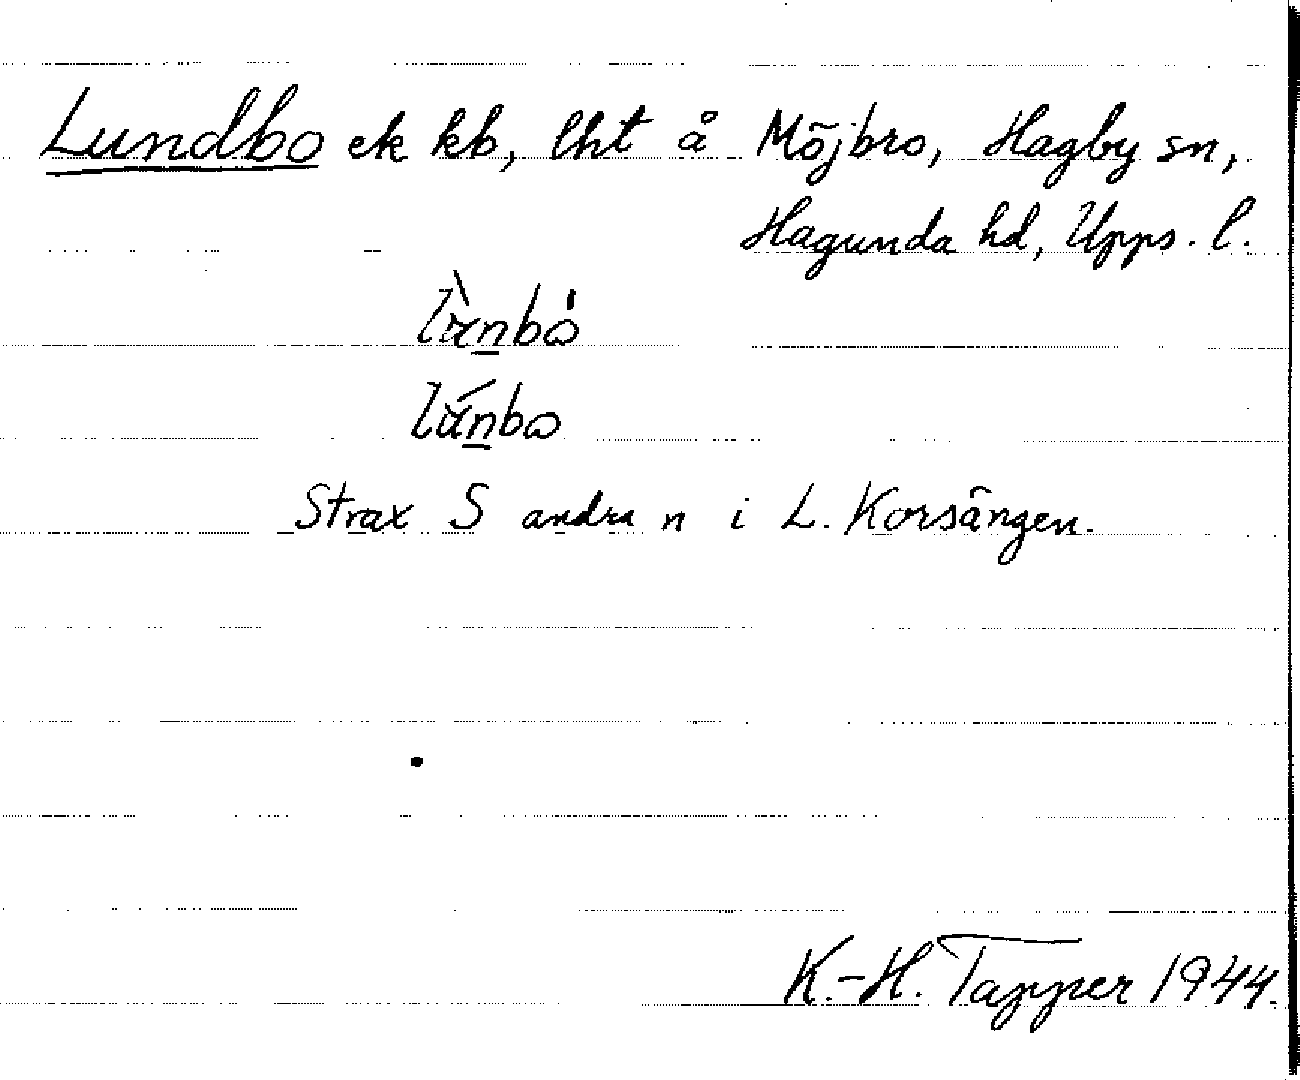 Lundbo ek kb, lht å Möjbro, Hagby sn,
Hagunda hd, Upps. l.
Strax S andra n i L. Korsängen.
K.-H. Tapper 1944.